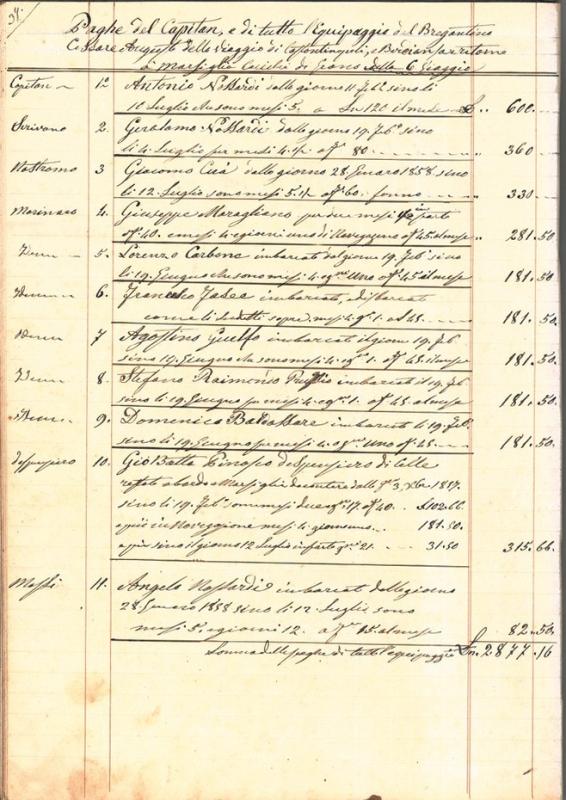 Paghe del Capitan, e di tutto l'Equipaggio del Bregantino
Cesare Augusto dello viaggio di Costantinopoli, e ritorno
a Marsiglia 6 Viaggio
Capitan 1º Antonio dalle giorno 11 Febº sino li
10 Luglio che sono mesi 5. a Ln 120 il mele 600
Scrivano 2. Gerolamo dalle giorno 19. Febº sino
li 4. Luglio per medi 4 ½ a 80 360
Nostromo 3 Giacomo dalle giorno 28. Genaro 1858 sino
li 12. Luglio sono mesi 5. ½ a 60. 330
Marinaro 4. Giuseppe Maragliano per due mesi in porto
a 40. e mesi 4. e giorni uno di a 45. al mese 281.50
Idem 5. Lorenzo Carbone imbarcato dal giorno 19. Feb° sino
li 19. Giugno che sono mesi 4. e Uno a 45 al mese 181.50
Idem 6. Francesco imbarcato, e disbarcato
come li sopra. mesi 4. 1. a 45. 181.50
Idem 7 Agostino Guelfo imbarcato il giorno 19. Feb
sino 19. Giugno che sono mesi 4. 1. a 45. il mese 181.50
Idem 8. Stefano Raimondo imbarcato il 19. Feb
sino li 19. Giugno per mesi 4. 1. a 45. al mese 181.50
Idem 9. Domenico Baldassare imbarcato li 19. Feb.
sino li 19. Giugno per mesi 4. Uno a 45. 181.50
despensiero 10. Gio Batta despensiero di
a bordo a Marsiglia da contare dalli 3. Xbre 1857.
sino li 19. Febº sono mesi due e 17. a 40. £102.66
e più in Navegazione mesi 4. giorno uno 181.50.
e più sino il giorno 12 Luglio in porto 21. 31.50 315.66.
11. Angelo imbarcato dalle giorno
28 Genaro 1858 sino li 12. Luglio sono
mesi 5. e giorni 12. a 15. al mese 82.50.
Somma delle paghe di tutto l'equipaggio Ln. 2877.16